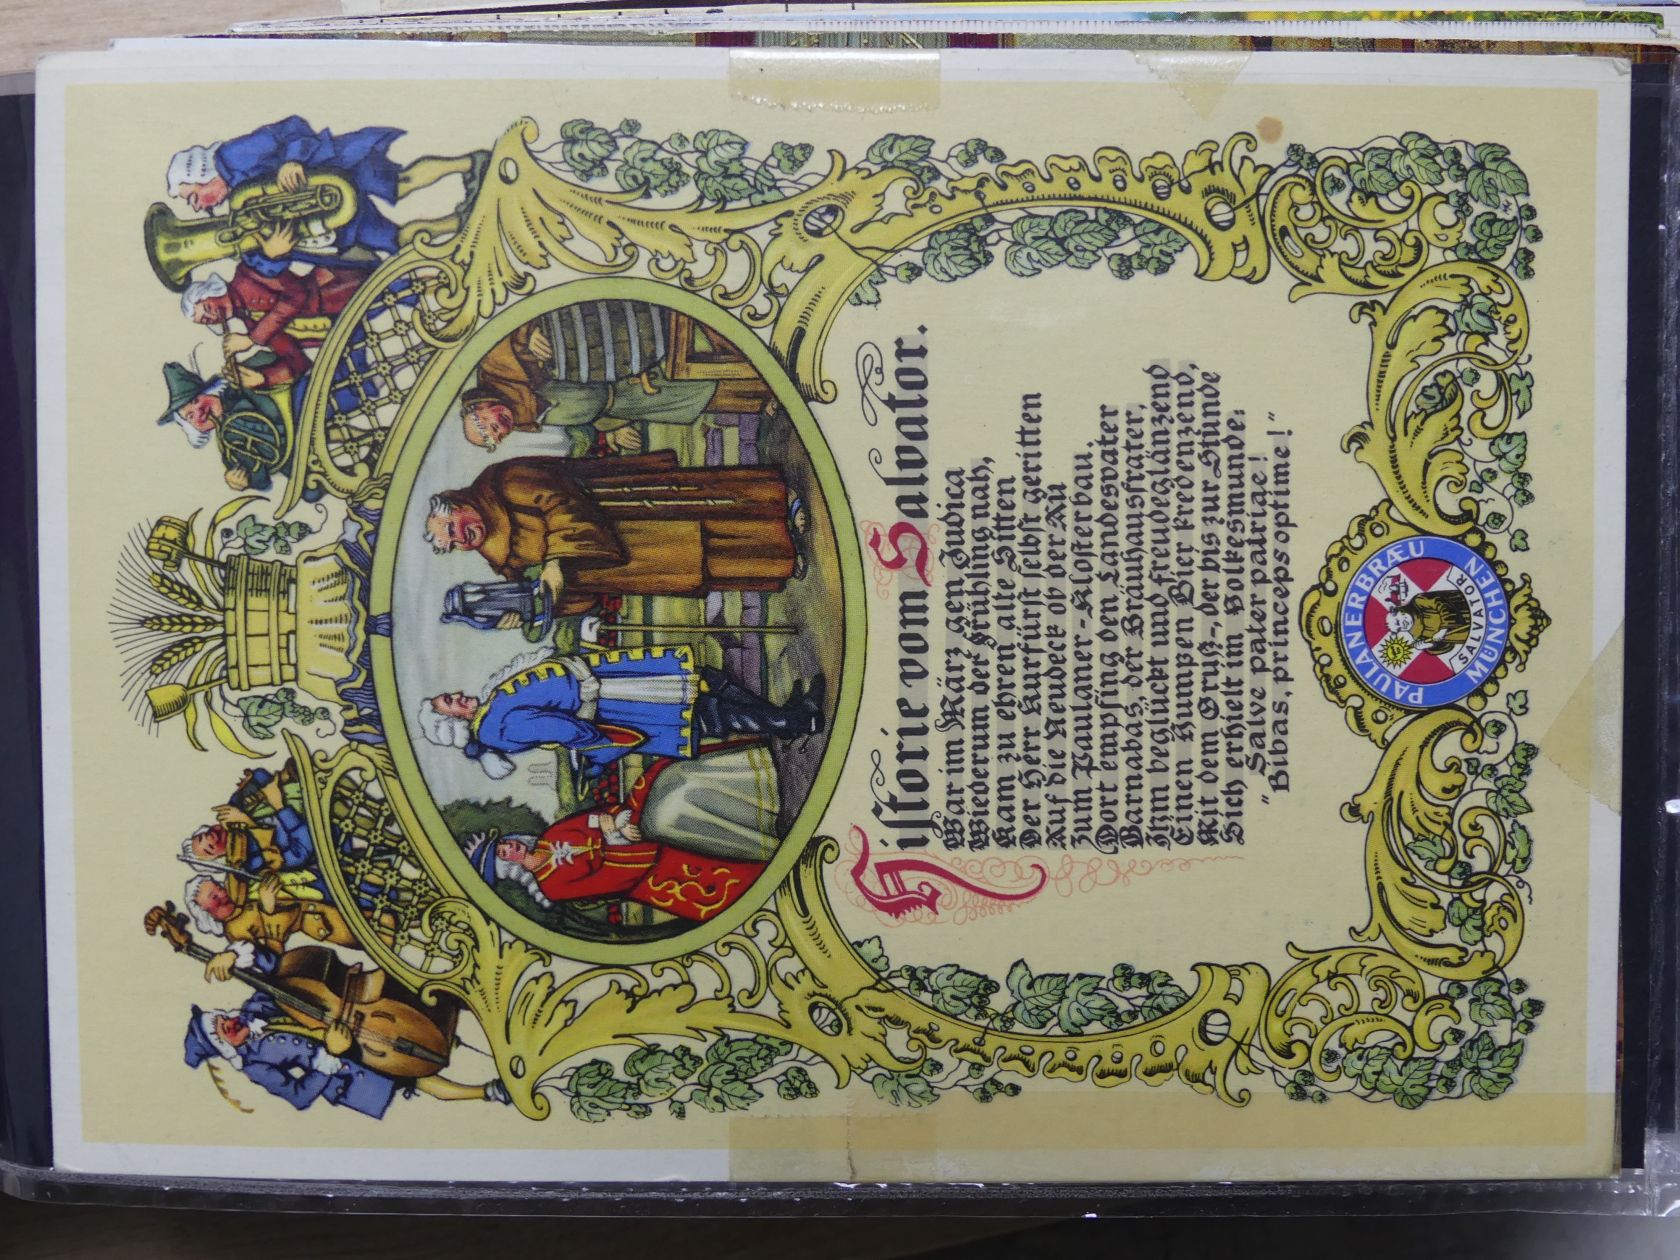 Historie vom Salvator.
War im März gen Judica
Wiederum der Frühling nah,
Kam zu ehren alte Sitten
Der Herr Kurfürst selbst geritten
Auf die Neudeck ob der Au
Zum Paulaner-Klosterbau.
Dort empfing den Landesvater
Barnabas, der Bräuhausfrater,
Ihm beglückt und freudeglänzend
Einen Humpen Bier kredenzend,
Mit dem Gruß, der bis zur Stunde
Sich erhielt im Volkesmunde:
"Salve pater patriae!
"Bibas, princeps optime!"
PAULANERBRÆU
SALVATOR
MÜNCHEN